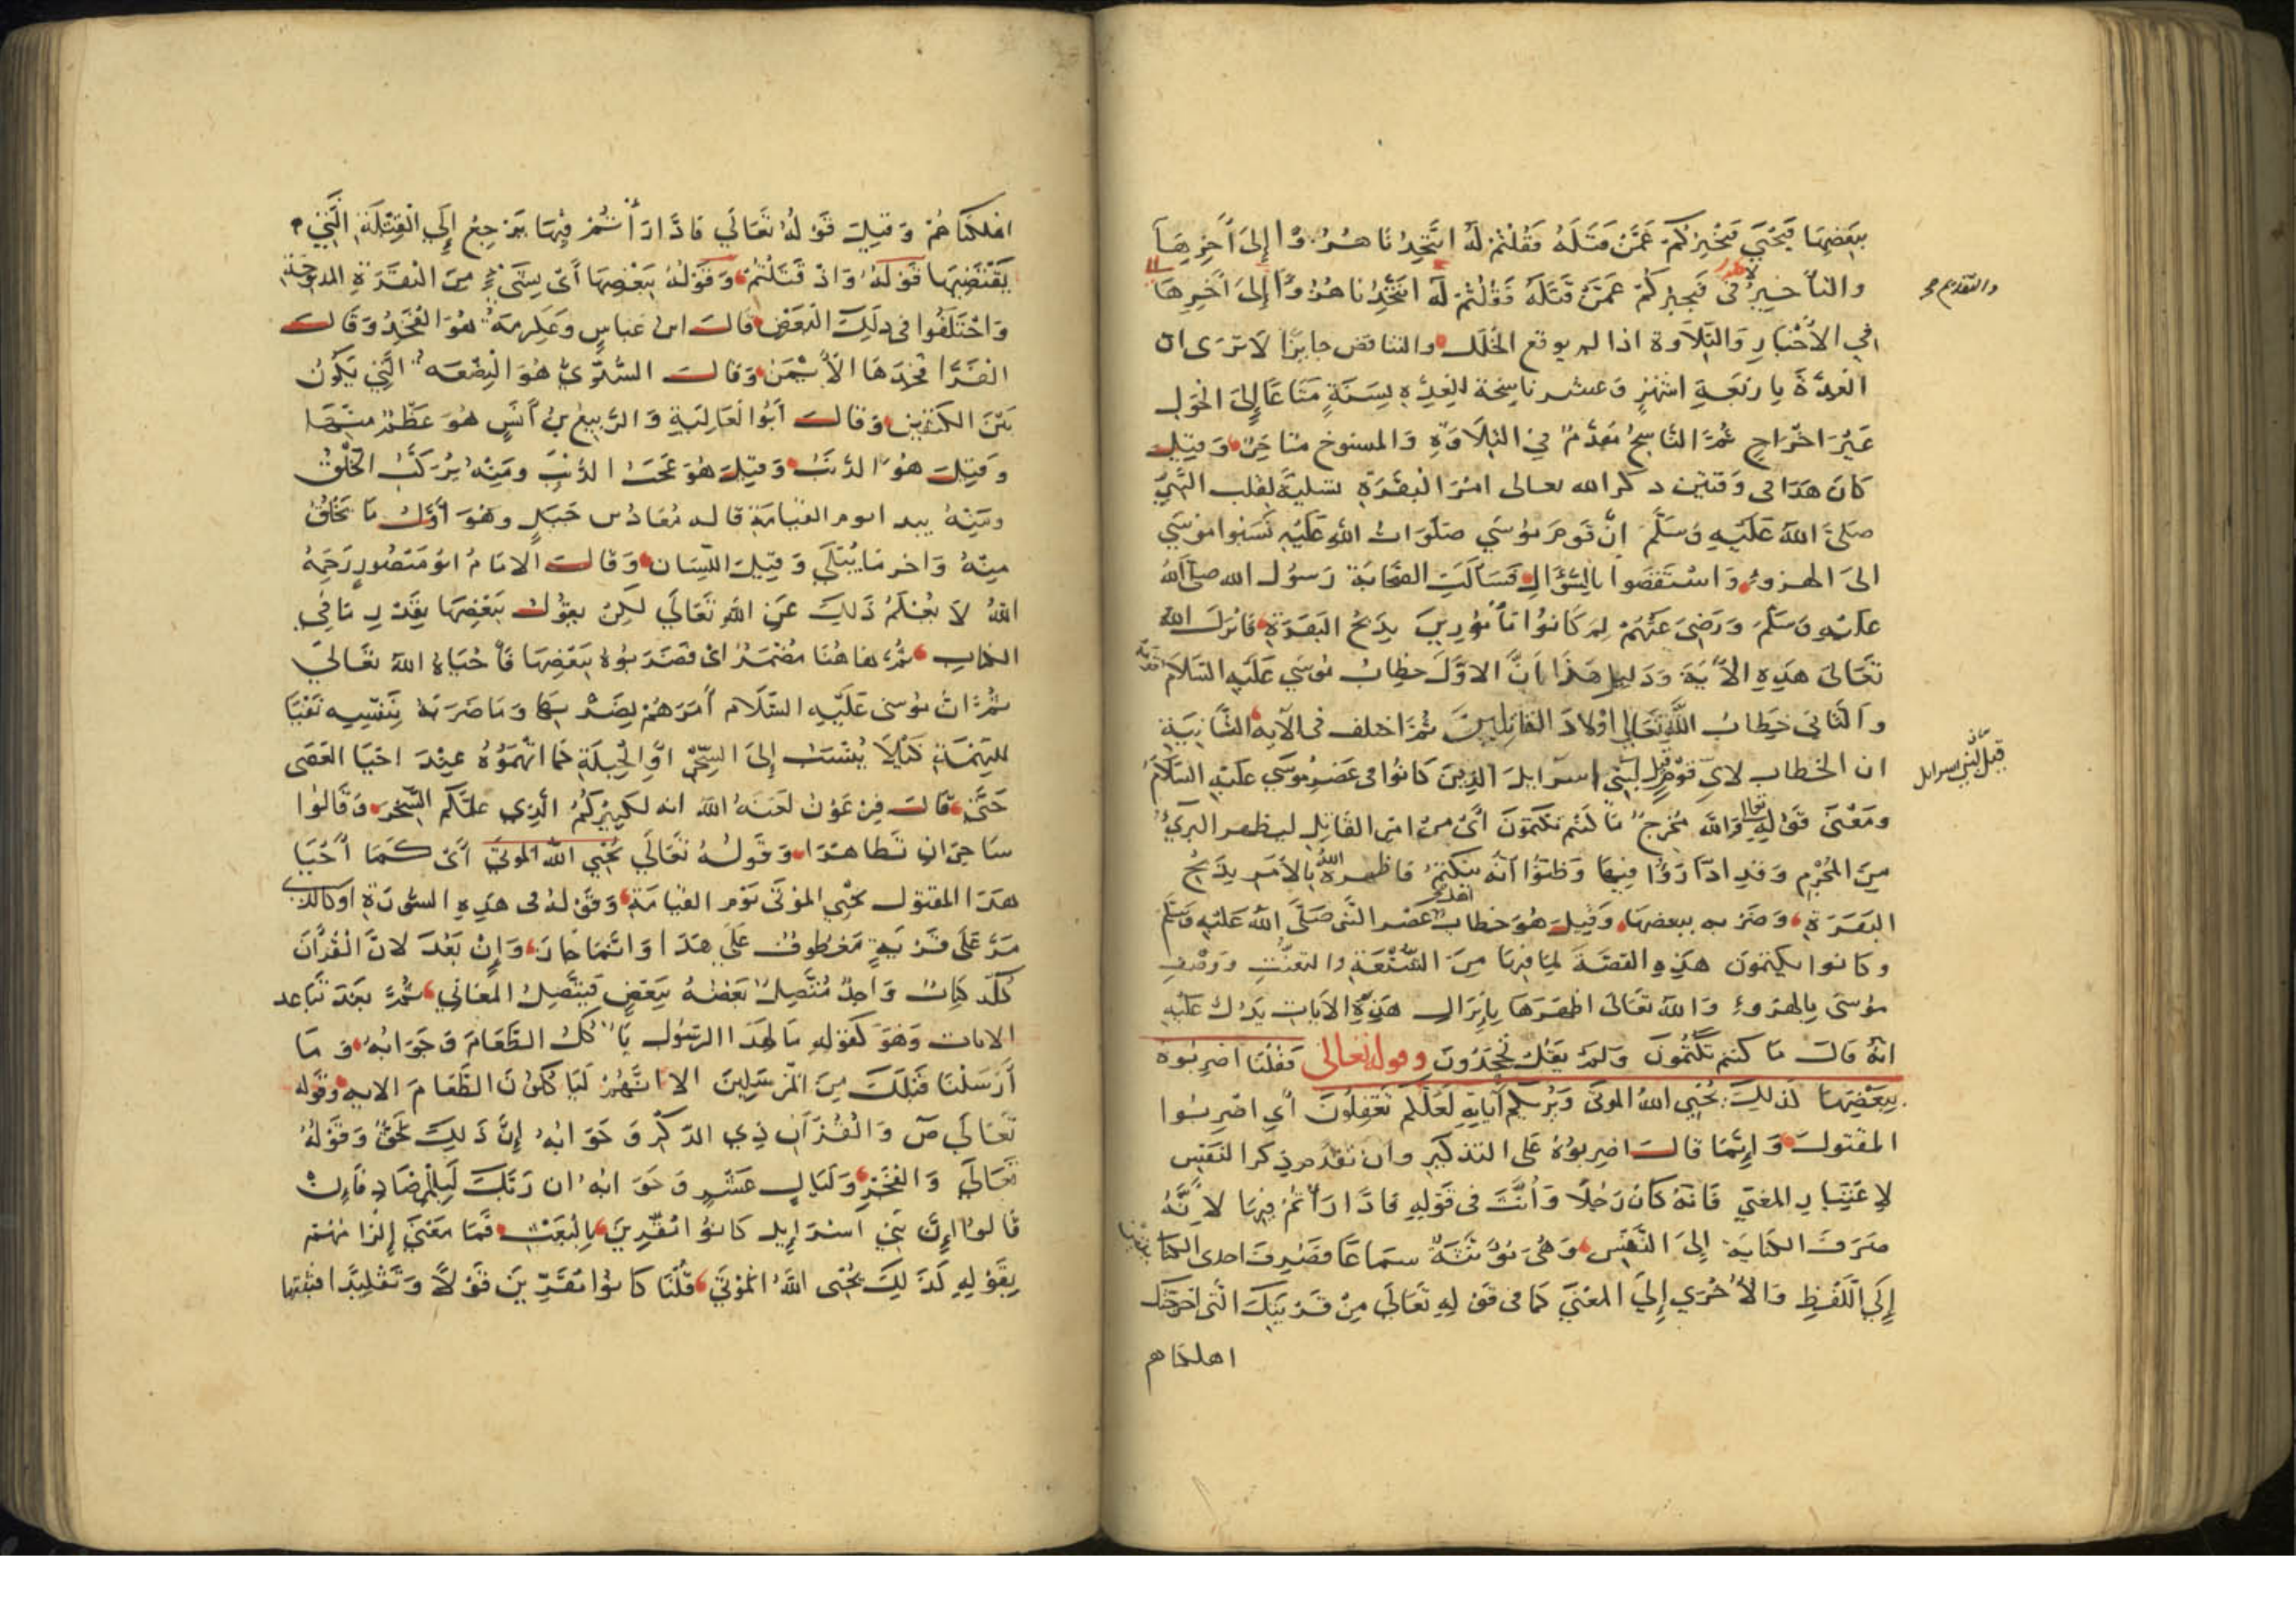 ببعضها فيحيى فيخبركم عمن قتله فقلتم له اتتخذنا هزوا إلى آخرها
والتأخير في فيخبركم عمن قتله فقلتم له اتتخذنا هزوا إلى آخرها
والتقديم
في الأخبار والتلاوة اذا لم يوقع الخلل والتناقض جايزا لا ترى ان
العدة باربعة اشهر وعشر ناسخة للعدة بسنة متاعا إلى الحول
غير اخراج ثم الناسخ مقدم في التلاوة والمنسوخ متاخر وقيل
كان هذا في وقتين ذكر الله تعالى امر البقرة تسلية لقلب النبي
صلى الله عليه وسلم ان قوم موسى صلوات الله عليه نسبوا موسى
الى الهزوء واستقصوا بالسؤال فسالت الصحابة رسول الله صلى الله
عليه وسلم ورضي عنهم لم كانوا مأمورين بذبح البقرة فانزل الله
تعالى هذه الآية ودليل هذا ان الاول خطاب موسى عليه السلام
والثاني خطاب الله تعالى اولاد القاتلين ثم اختلف في الآية الثانية
ان الخطاب لاي قوم قيل لبني اسرايل الذين كانوا في عصر موسى عليه السلام
قيل لبني اسرايل
ومعنى قوله تعالى والله مخرج ما كنتم تكتمون أي من امر القاتل ليظهر البريء
من المجرم وقد ادارؤا فيها وظنوا أنه ينكتم فاظهره الله بالأمر بذبح
البقرة وضربه ببعضها وقيل هو خطاب اهل عصر النبي صلى الله عليه وسلم
وكانوا يكتمون هذه القصة لما فيها من الشنعة والتعنت ووصف
موسى بالهزوء والله تعالى اظهرها بإنزال هذه الآيات يدل عليه
انه قال ما كنتم تكتمون ولم يقل تجحدون وقوله تعالى فقلنا اضربوه
ببعضها كذلك يحيي الله الموتى ويريكم آياته لعلكم تعقلون أي اضربوا
المقتول وإنما قال اضربوه على التذكير وان تقدم ذكر النفس
لاعتبار المعنى فانه كان رجلا وأنث في قوله فادارأتم فيها لأنه
صرف الكناية إلى النفس وهي مؤنثة سماعا فصرف احدى الكنايتين
إلى اللفظ والأخرى إلى المعنى كما في قوله تعالى من قريتك التي اخرجتك
اهلكناهم
اهلكناهم وقيل قوله تعالى فادارأتم فيها يرجع إلى القتلة التي
يقتضيها قوله واذ قتلتم وقوله ببعضها أي بشيء من البقرة المذبوحة
واختلفوا في ذلك البعض قال ابن عباس وعكرمة هو الفخذ وقال
الفرا فخذها الأيمن وقال السدي هو البضعة التي يكون
بين الكتفين وقال أبو العالية والربيع بن أنس هو عظم منها
وقيل هو الذنب وقيل هو عجب الذنب ومنه يركب الخلق
ومنه يبدا يوم القيامة قاله معاذ بن جبل وهو أول ما يخلق
منه واخر ما يبلى وقيل اللسان وقال الامام ابو منصور رحمه
الله لا نعلم ذلك عن الله تعالى لكن يقول ببعضها بقدر ما في
الكتاب ثم هاهنا مضمر اي فضربوه ببعضها فأحياه الله تعالى
ثم ان موسى عليه السلام أمرهم بضربها وما ضربه بنفسه نفيا
للتهمة كيلا ينسب إلى السحر او الحيلة كما اتهموه عند احيا العصى
حتى قال فرعون لعنه الله انه لكبيركم الذي علمكم السحر وقالوا
ساحران تظاهرا وقوله تعالى يحيي الله الموتى أي كما أحيا
هذا المقتول يحيي الموتى يوم القيامة وقوله في هذه السورة او كالذي
مر على قرية معطوف على هذا وانما جاز وإن بعد لان القرآن
كله كتاب واحد متصل بعضه ببعض فيتصل المعاني ثم بعد تباعد
الايات وهو كقوله مال هذا الرسول يأكل الطعام وجوابه وما
أرسلنا قبلك من المرسلين الا انهم ليأكلون الطعام الايه وقوله
تعالى ص والقرآن ذي الذكر وجوابه إن ذلك لحق وقوله
تعالى والفجر وليال عشر وجوابه ان ربك لبالمرصاد فإن
قالوا إن بني اسرايل كانوا مقرين بالبعث فما معنى إلزامهم
بقوله كذلك يحيى الله الموتى قلنا كانوا مقرين قولا وتقليدا فثبتها